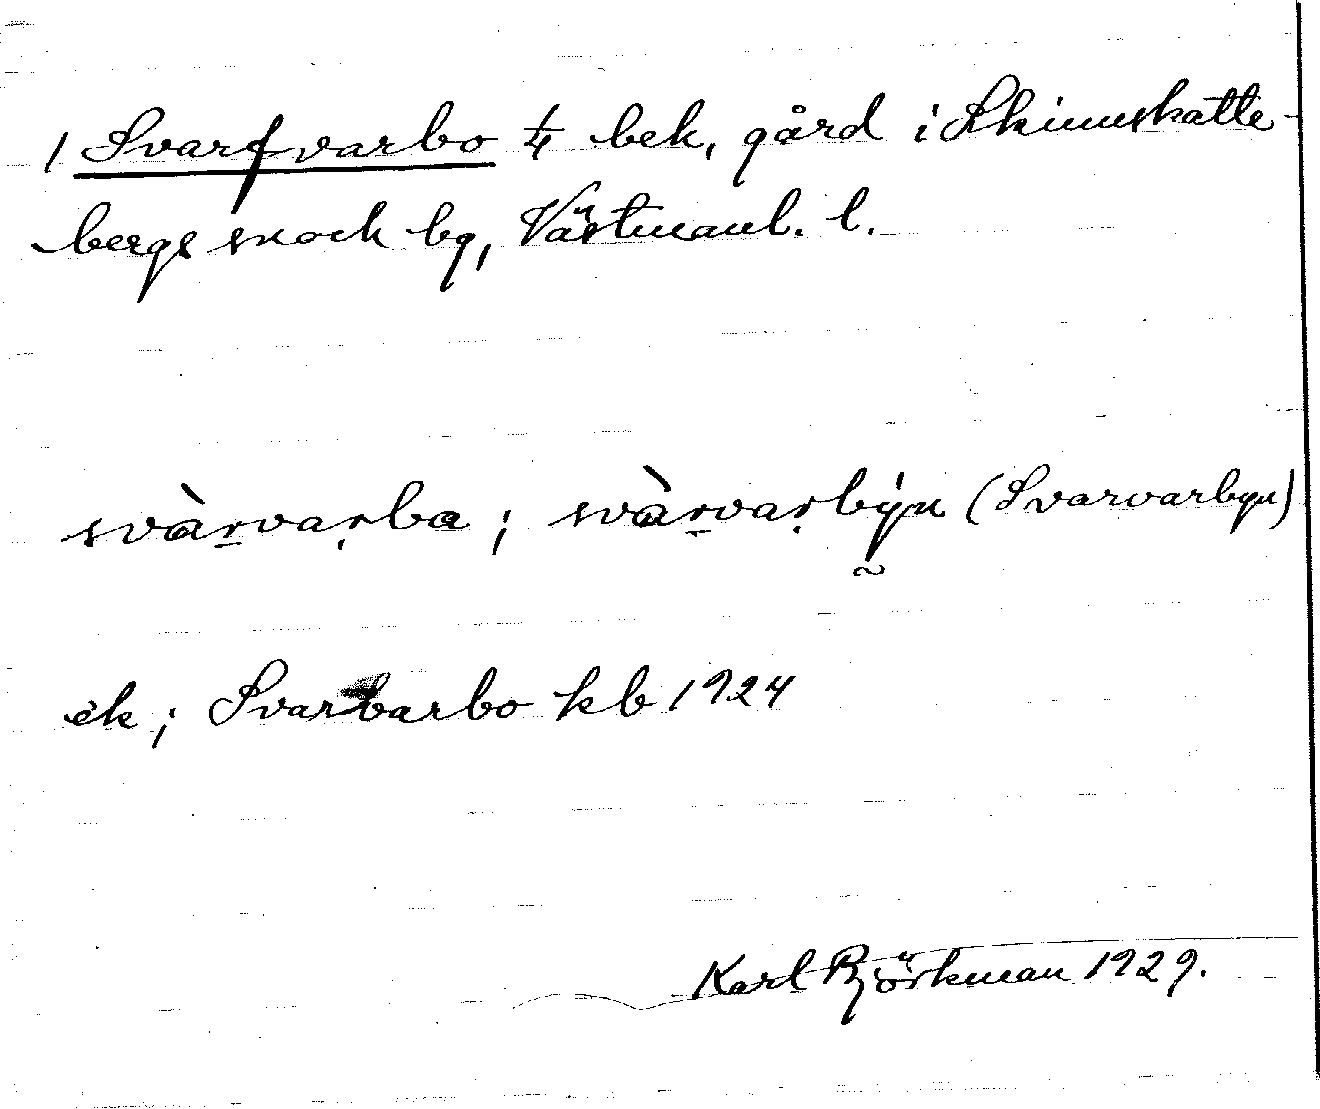 1 Svarfvarbo ¼ bek, gård i Skinnskatte-
bergs sock bg, Västmanl. l.
svàrvarba; svàrvarbýn (Svarvarbyn)
ek; Svarvarbo kb 1924
Karl Björkman 1929.